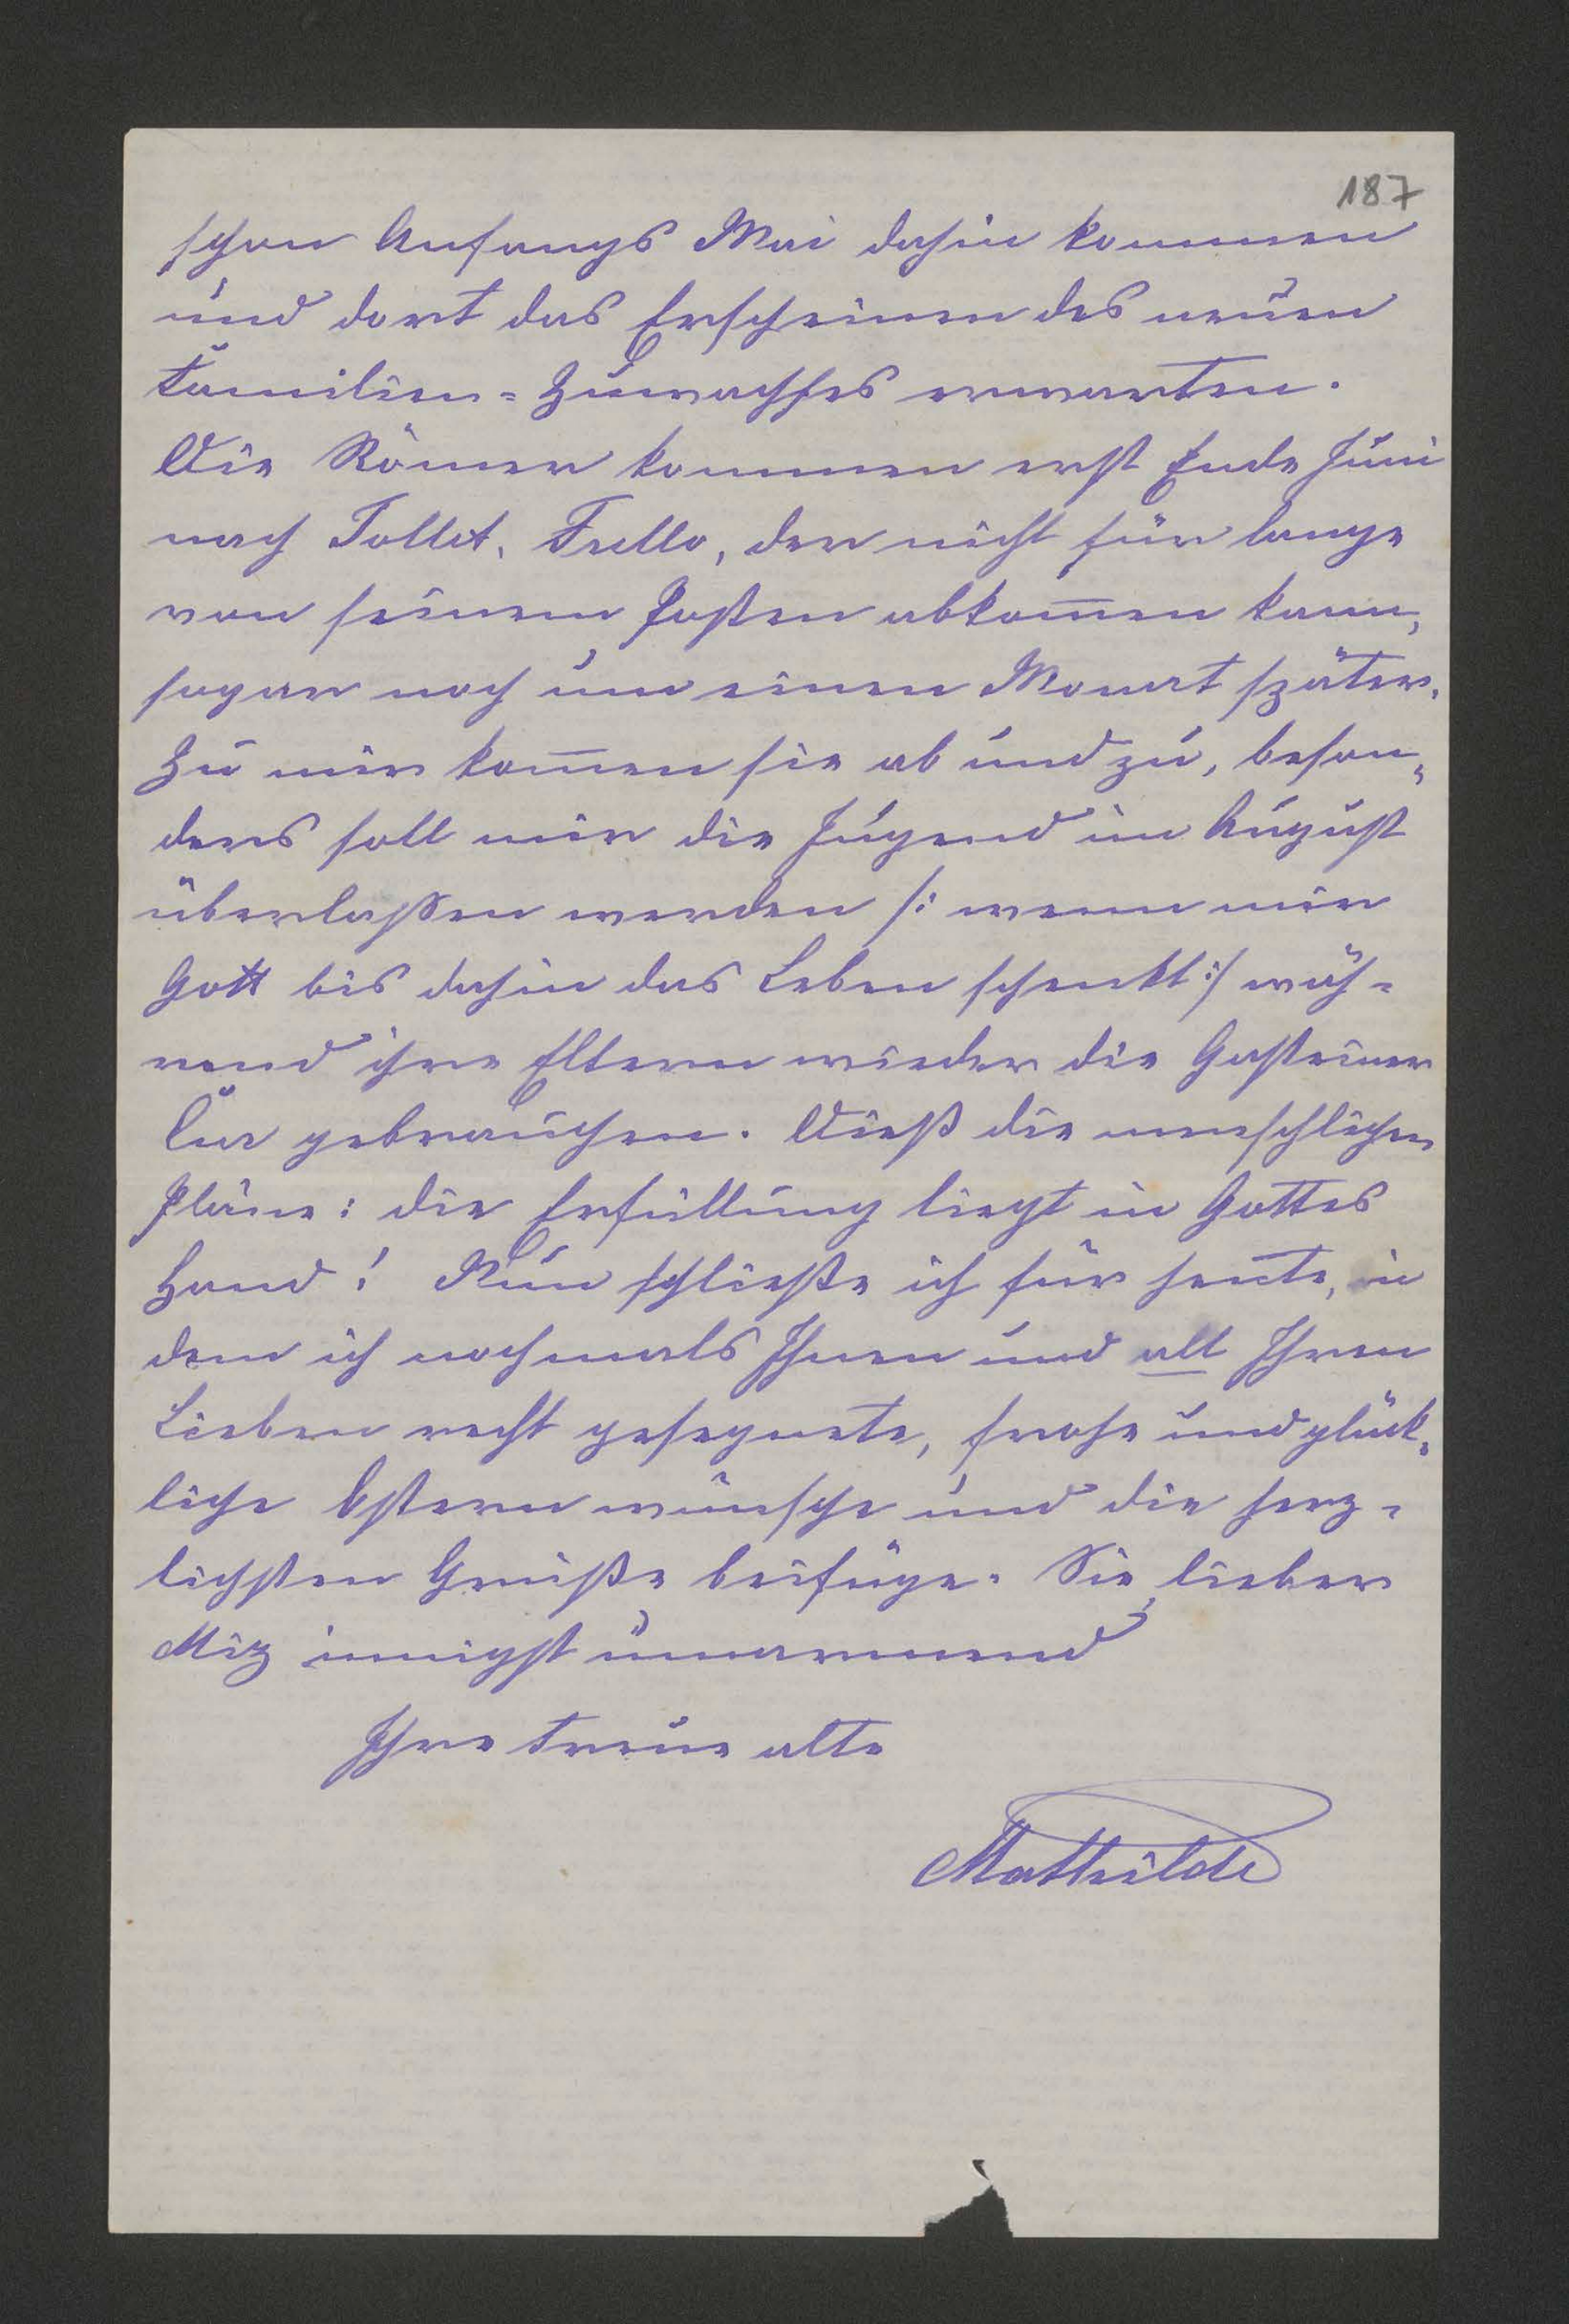 187
schon Anfangs Mai dahin kommen
und dort das Erscheinen des neuen
Familien-Zuwachses erwarten.
Die Römer kommen erst Ende Juni
nach Tollet, Frello, der nicht für lange
von seinem Posten abkom̅en kann,
sogar noch um einen Monat später.
Zu mir kom̅en sie ab und zu, beson-
ders soll mir die Jugend im August
überlaßen werden /: wenn mir
Gott bis dahin das Leben schenkt :/ wäh-
rend ihre Eltern wieder die Gasteiner
Cur gebrauchen. Dieß die menschlichen
Pläne: die Erfüllung liegt in Gottes
Hand! Nun schließe ich für heute, in
dem ich nochmals Ihnen und all Ihren
Lieben recht gesegnete, frohe und glück-
liche Ostern wünsche und die herz-
lichsten Grüße beifüge. Sie, lieber
Miz innigst umarmend
Ihre treue alte
Mathilde